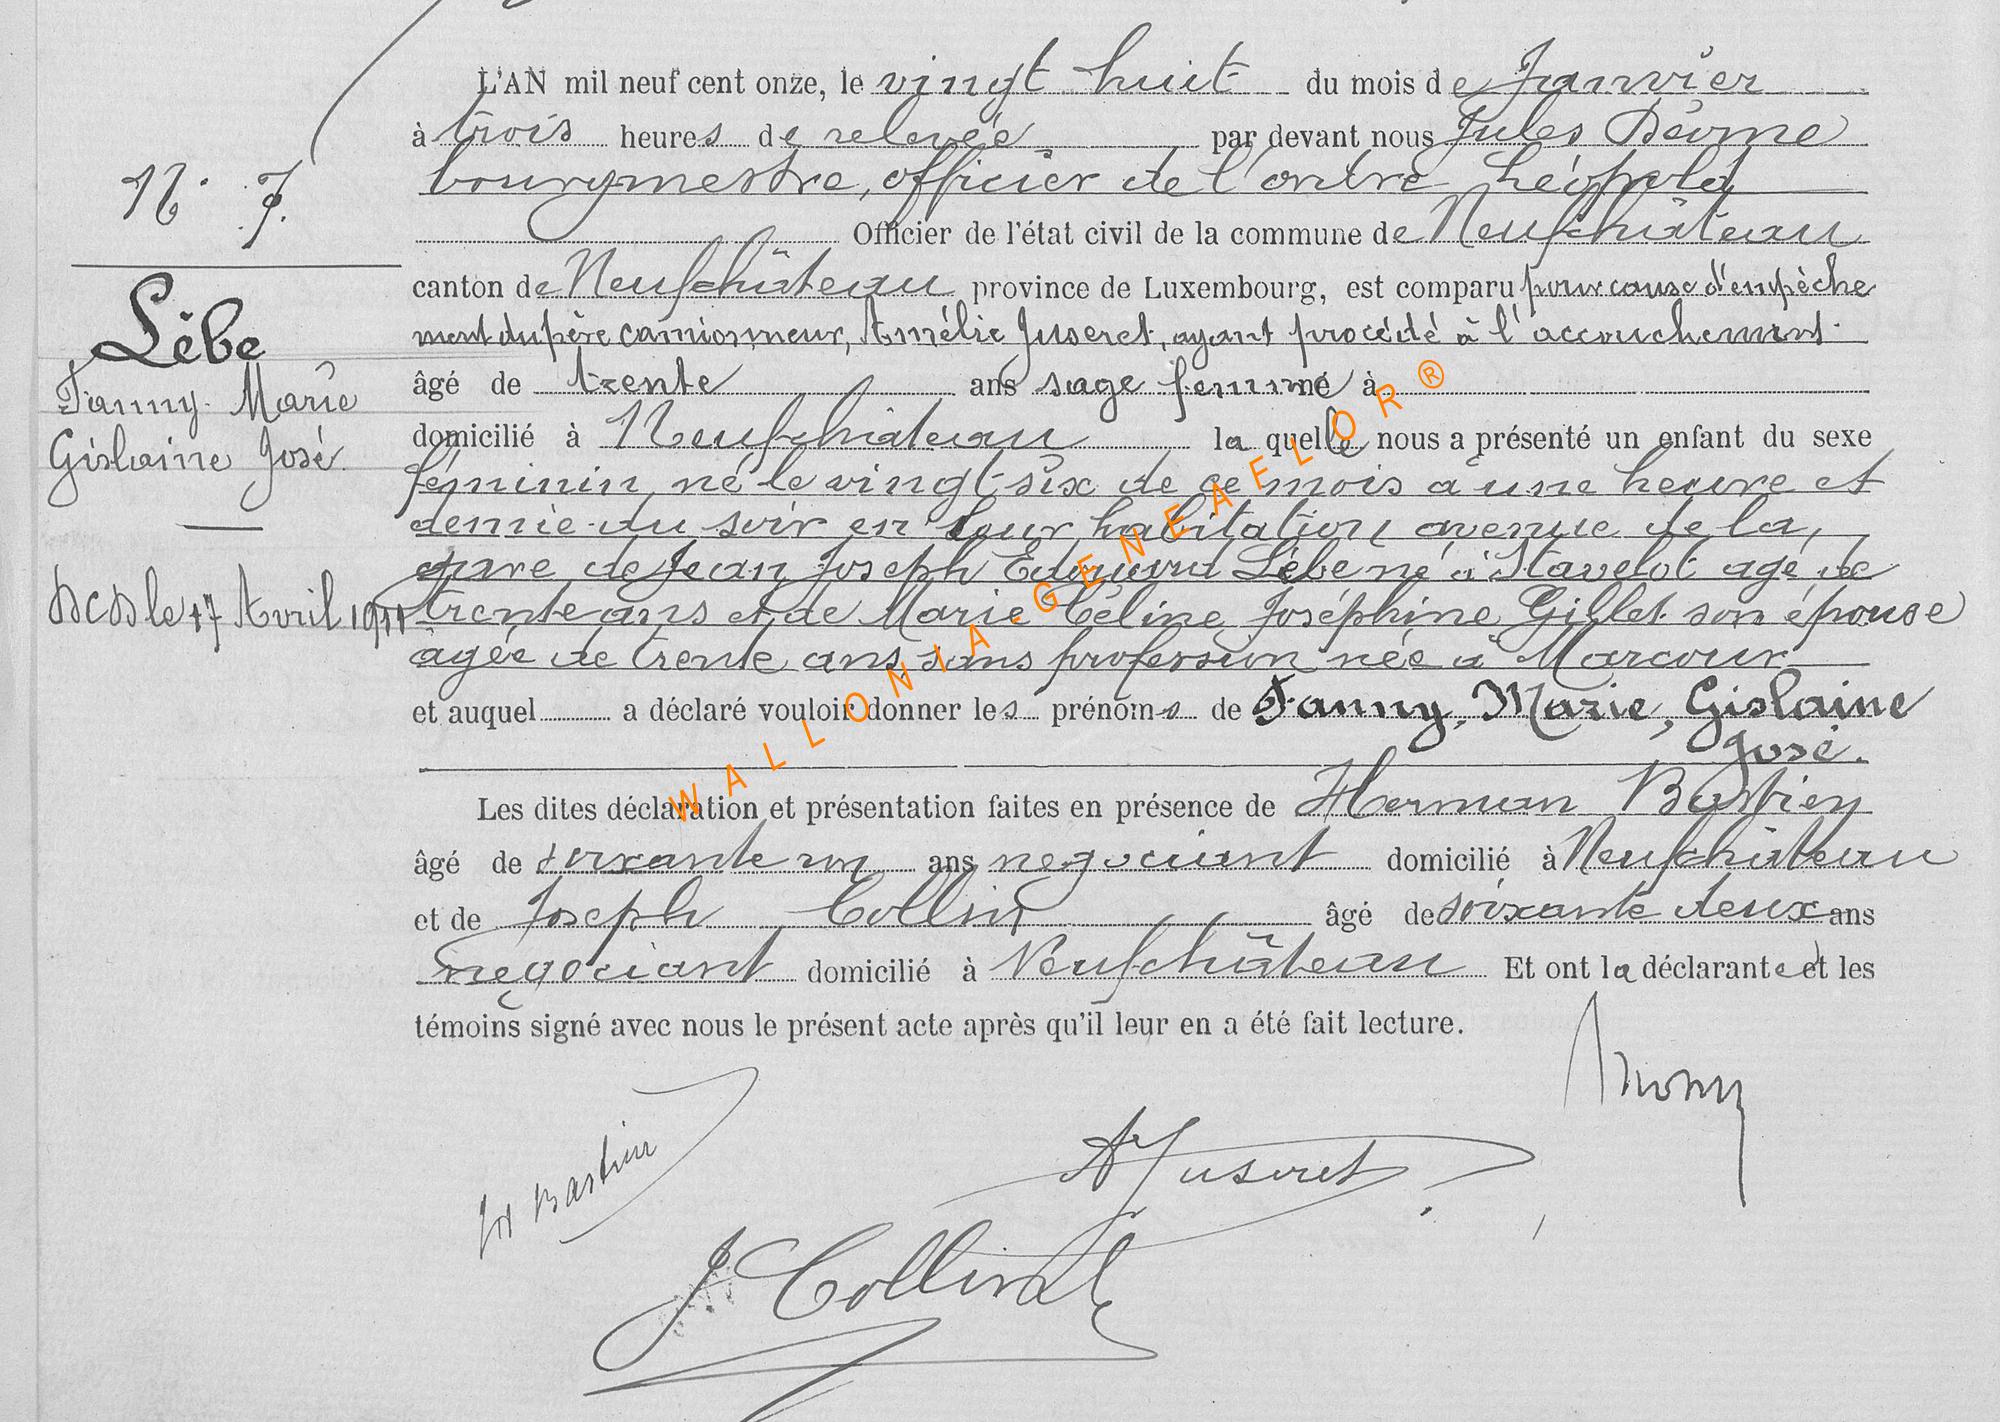 L'AN mil neuf cent onze, le vingt huit du mois de Janvier
à trois heures de relevée par devant nous Jules
bourgmestre, officier de l'ordre Léopold
Officier de l'état civil de la commune de Neufchâteau
canton de Neufchâteau province de Luxembourg, est comparu pour cause d'empèche
ment du père camionneur, Amélie Juseret, ayant procédé à l'accouchement
âgé de trente ans sage femme né à
domicilié à Neufchâteau la quelle nous a présenté un enfant du sexe
féminin, né le vingt-six de ce mois à une heure et
demie du soir en leur habitation avenue de la
gare de Jean Joseph Edouard Lèbe né à Stavelot agé de
trente ans et de Marie Céline Joséphine Gillet son épouse
agée de trente ans sans profession née à Marcour
et auquel a déclaré vouloir donner les prénoms de Fanny, Marie, Gislaine
José.
Les dites déclaration et présentation faites en présence de Herman Bastien
âgé de soixante un ans negociant domicilié à Neufchâteau
et de Joseph Collin âgé de soixante deux ans
négociant domicilié à Neufchâteau Et ont la déclarante et les
témoins signé avec nous le présent acte après qu'il leur en a été fait lecture.
N° 7.
Lèbe
Fanny Marie
Gislaine José.
DCD le 17 Avril 1911
H Bastien
A Juseret
J Collin
WALLONIA-GENEAFLOR®